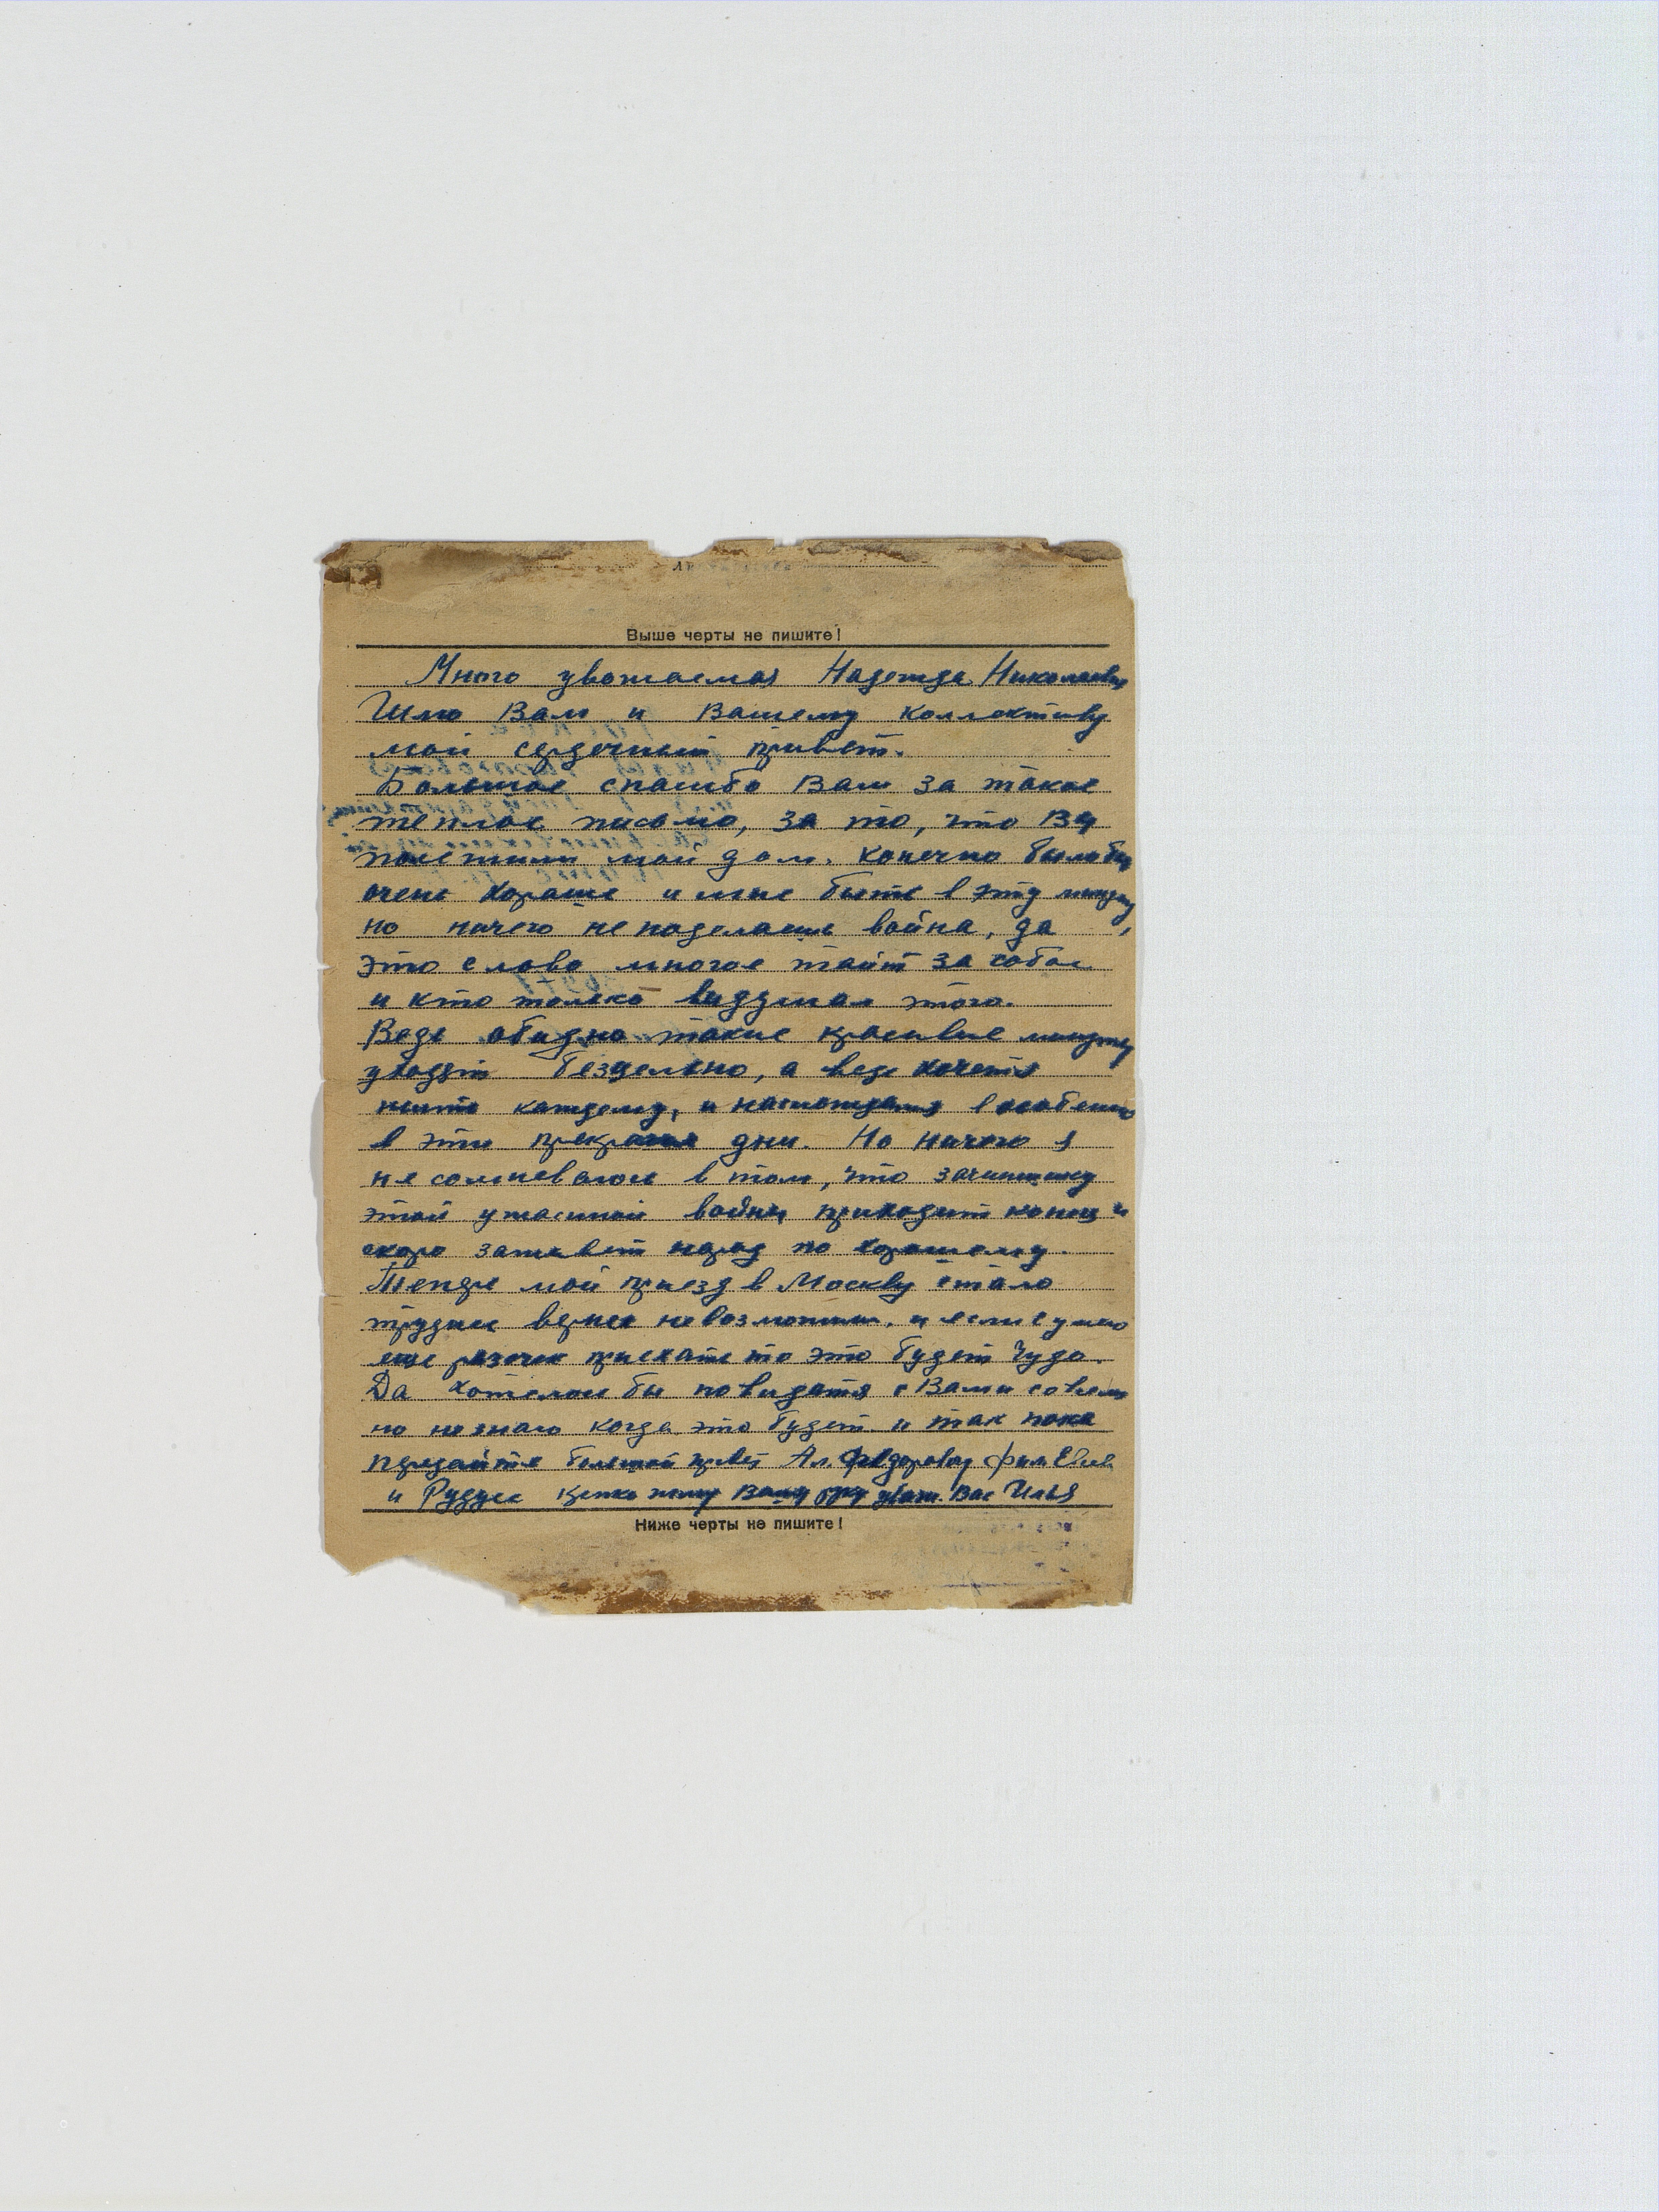 Выше черты не пишите!
Много уважаемая Надежда Николаевна
Шлю Вам и Вашему коллективу
мой сердечный привет.
Большое спасибо Вам за такое
теплое письмо, за то, что Вы
посетили мой дом. конечно было бы
очень хорошо и мне быть в эту минуту
но ничего не поделаешь война, да,
это слово многое таит за собой
и кто только выдумал этого.
Ведь обидно такие красивые минуты
уходят бездельно, а ведь хочется
жить каждому, и наслаждатся в особенно
в эти прекрасные дни. Но ничего я
не сомневаюсь в том, что зачинщику
этой ужасной войны приходит конец и
скоро заживет народ по хорошому.
Теперь мой приезд в Москву стало
труднее вернее невозможным, и если сумею
еще разочек приехать то это будет чудо.
Да хотелось бы повидатся с Вами совсеми
но не знаю когда это будет. и так пока
передайте большой привет Ал. Федоровау Фим
и крепко жму Вашу руку уваж. Вас Илья
Ниже черты не пишите!